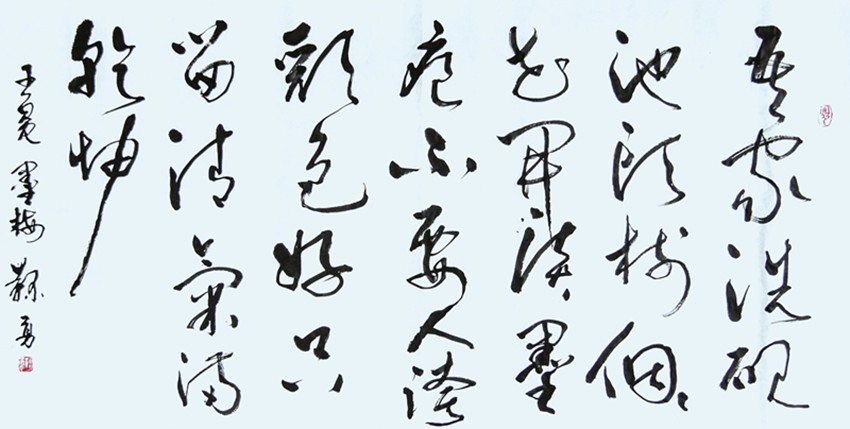 吾家洗砚
池头树個々
花開淡墨
痕不要人誇
顏色好只
留清氣滿
乾坤
王冕墨梅 勇